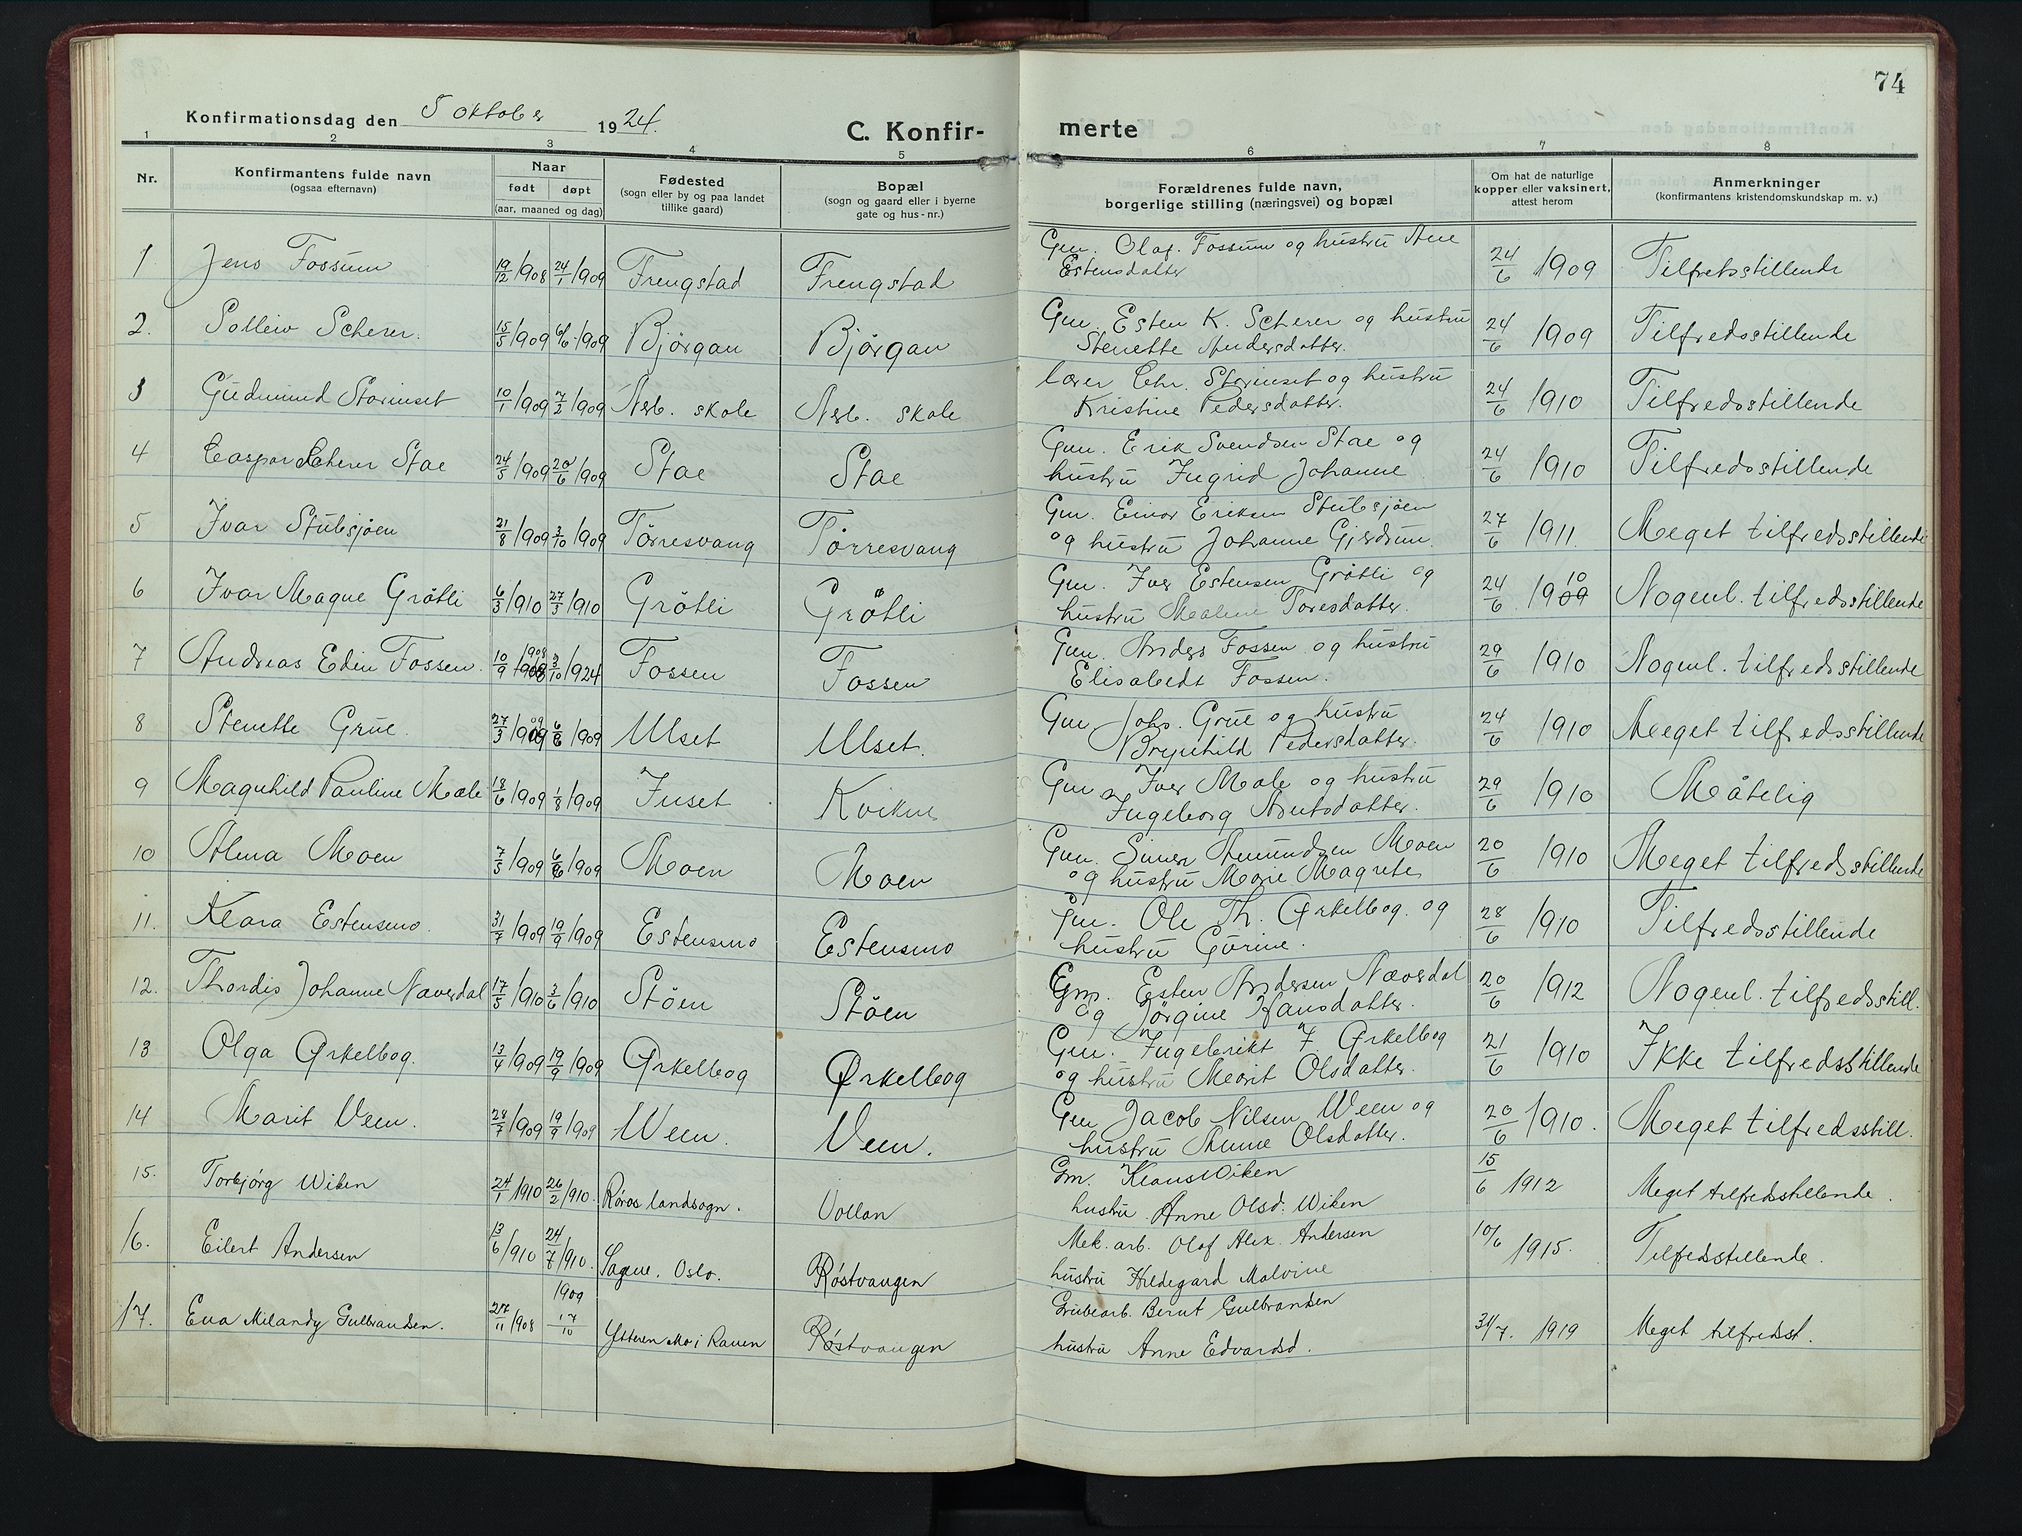 74
Konfirmationsdag den 5 oktober 1924.
C. Konfir- merte
1 2 3 4 5 6 7 8
Nr.
Konfirmantens fulde navn
(ogsaa efternavn)
Naar
født døpt
(aar, maaned og dag)
Fødested
(sogn eller by og paa landet
tillike gaard)
Bopæl
(sogn og gaard eller i byerne
gate og hus-nr.)
Forældrenes fulde navn,
borgerlige stilling (næringsvei) og bopæl
Om hat de naturlige
kopper eller vaksinert,
attest herom
Anmerkninger
(konfirmantens kristendomskundskap m. v.)
1 Jens Fossum 19/12 1908 24/1 1909 Frengstad Frengstad Gm. Olaf Fossum og hustru Ane 24/6 1909 Tilfredsstillende
Estensdatter
2. Solleiv Scherer. 15/5 1909 6/6 1909 Bjørgan Bjørgan Gm. Esten K. Scherer og hustru 24/6 1909 Tilfredsstillende
Stenette Andersdatter.
3 Gudmund Storinset 10/1 1909 7/2 1909 Nerb. skole Nerb. skole lærer Chr. Storinset og hustru 24/6 1910 Tilfredsstillende
Kristine Pedersdatter.
4 Caspar Scherer Stae 24/5 1909 20/6 1909 Stae Stae Gm. Erik Svendsen Stae og 24/6 1910 Tilfredsstillende
hustru Ingrid Johanne
5 Ivar Stubsjøen 21/8 1909 3/10 1909 Tørresvang Tørresvang Gm. Einar Eriksen Stubsjøen 27/6 1911. Meget tilfredsstillende
og hustru Johanne Gjerdrum.
6 Ivar Magne Grøtli 6/3 1910 27/3 1910 Grøtli Grøtli Gm. Iver Estensen Grøtli og 24/6 1909 10 Nogenl. tilfredsstillende
hustru Malene Toresdatter.
7 Andreas Edin Fossen. 10/9 1908 908 3/10 1924 Fossen Fossen Gm. Anders Fossen og hustru 29/6 1910 Nogenl. tilfredsstillende
Elisabedt Fossen.
8 Stenette Grue. 27/3 1909 09 6/6 1909 Ulset Ulset. Gm Johs. Grue og hustru 24/6 1910 Meget tilfredsstillende
Brynhild Pedersdatter.
9 Magnhild Pauline Mæle 18/6 1909 1/8 1909 Inset Kvikne Gm Iver Mæle og hustru 29/6 1910 Måtelig
Ingeborg Arntsdatter.
10 Alma Moen 7/5 1909 6/6 1909 Moen Moen Gm. Simen Amundsen Moen 20/6 1910 Meget tilfredsstillende
og hustru Marie Magrete
11. Klara Estensmo. 31/7 1909 19/9 1909 Estensmo Estensmo Gm. Ole Th. Ørkelbog. og 28/6 1910 Tilfredsstillende
hustru Gørine.
12. Thordis Johanne Næverdal 17/5 1910 3/6 1910 Støen Støen Gm. Esten Andersen Næverdal 20/6 1912 Nogenl. tilfredsstill.
og Jørgine Hansdatter.
13 Olga Ørkelbog. 13/4 1909 19/9 1909 Ørkelbog Ørkelbog Gm. Ingebrikt I. Ørkelbog 21/6 1910 Ikke tilfredsstillende
og hustru Marit Olsdatter.
14 Marit Veen. 28/7 1909 19/9 1909 Ween. Veen. Gm Jacob Nilsen Ween og 20/6 1910. Meget tilfredsstill.
hustru Anne Olsdatter.
15. Torbjørg Wiken 24/1 1910 26/2 1910. Røros landsogn. Vollan Gm. Klaus Wiken 15/6 1912 Meget tilfredsstillende.
hustru Anne Olsd. Wiken
16. Eilert Andersen 13/6 1910 24/7 1910. Sagene. Oslo. Røstvangen Mek. arb. Olaf Alex. Andersen 10/6 1915. Tilfredsstillende.
hustru Hildegard Malvine
17. Eva Milandy Gulbrandsen. 27/11 1908 1909 17/10 Ytteren Mo i Ranen Røstvangen Grubearb. Bernt Gulbrandsen 31/7. 1919 Meget tilfredsst.
hustru Anne Edvardsd.